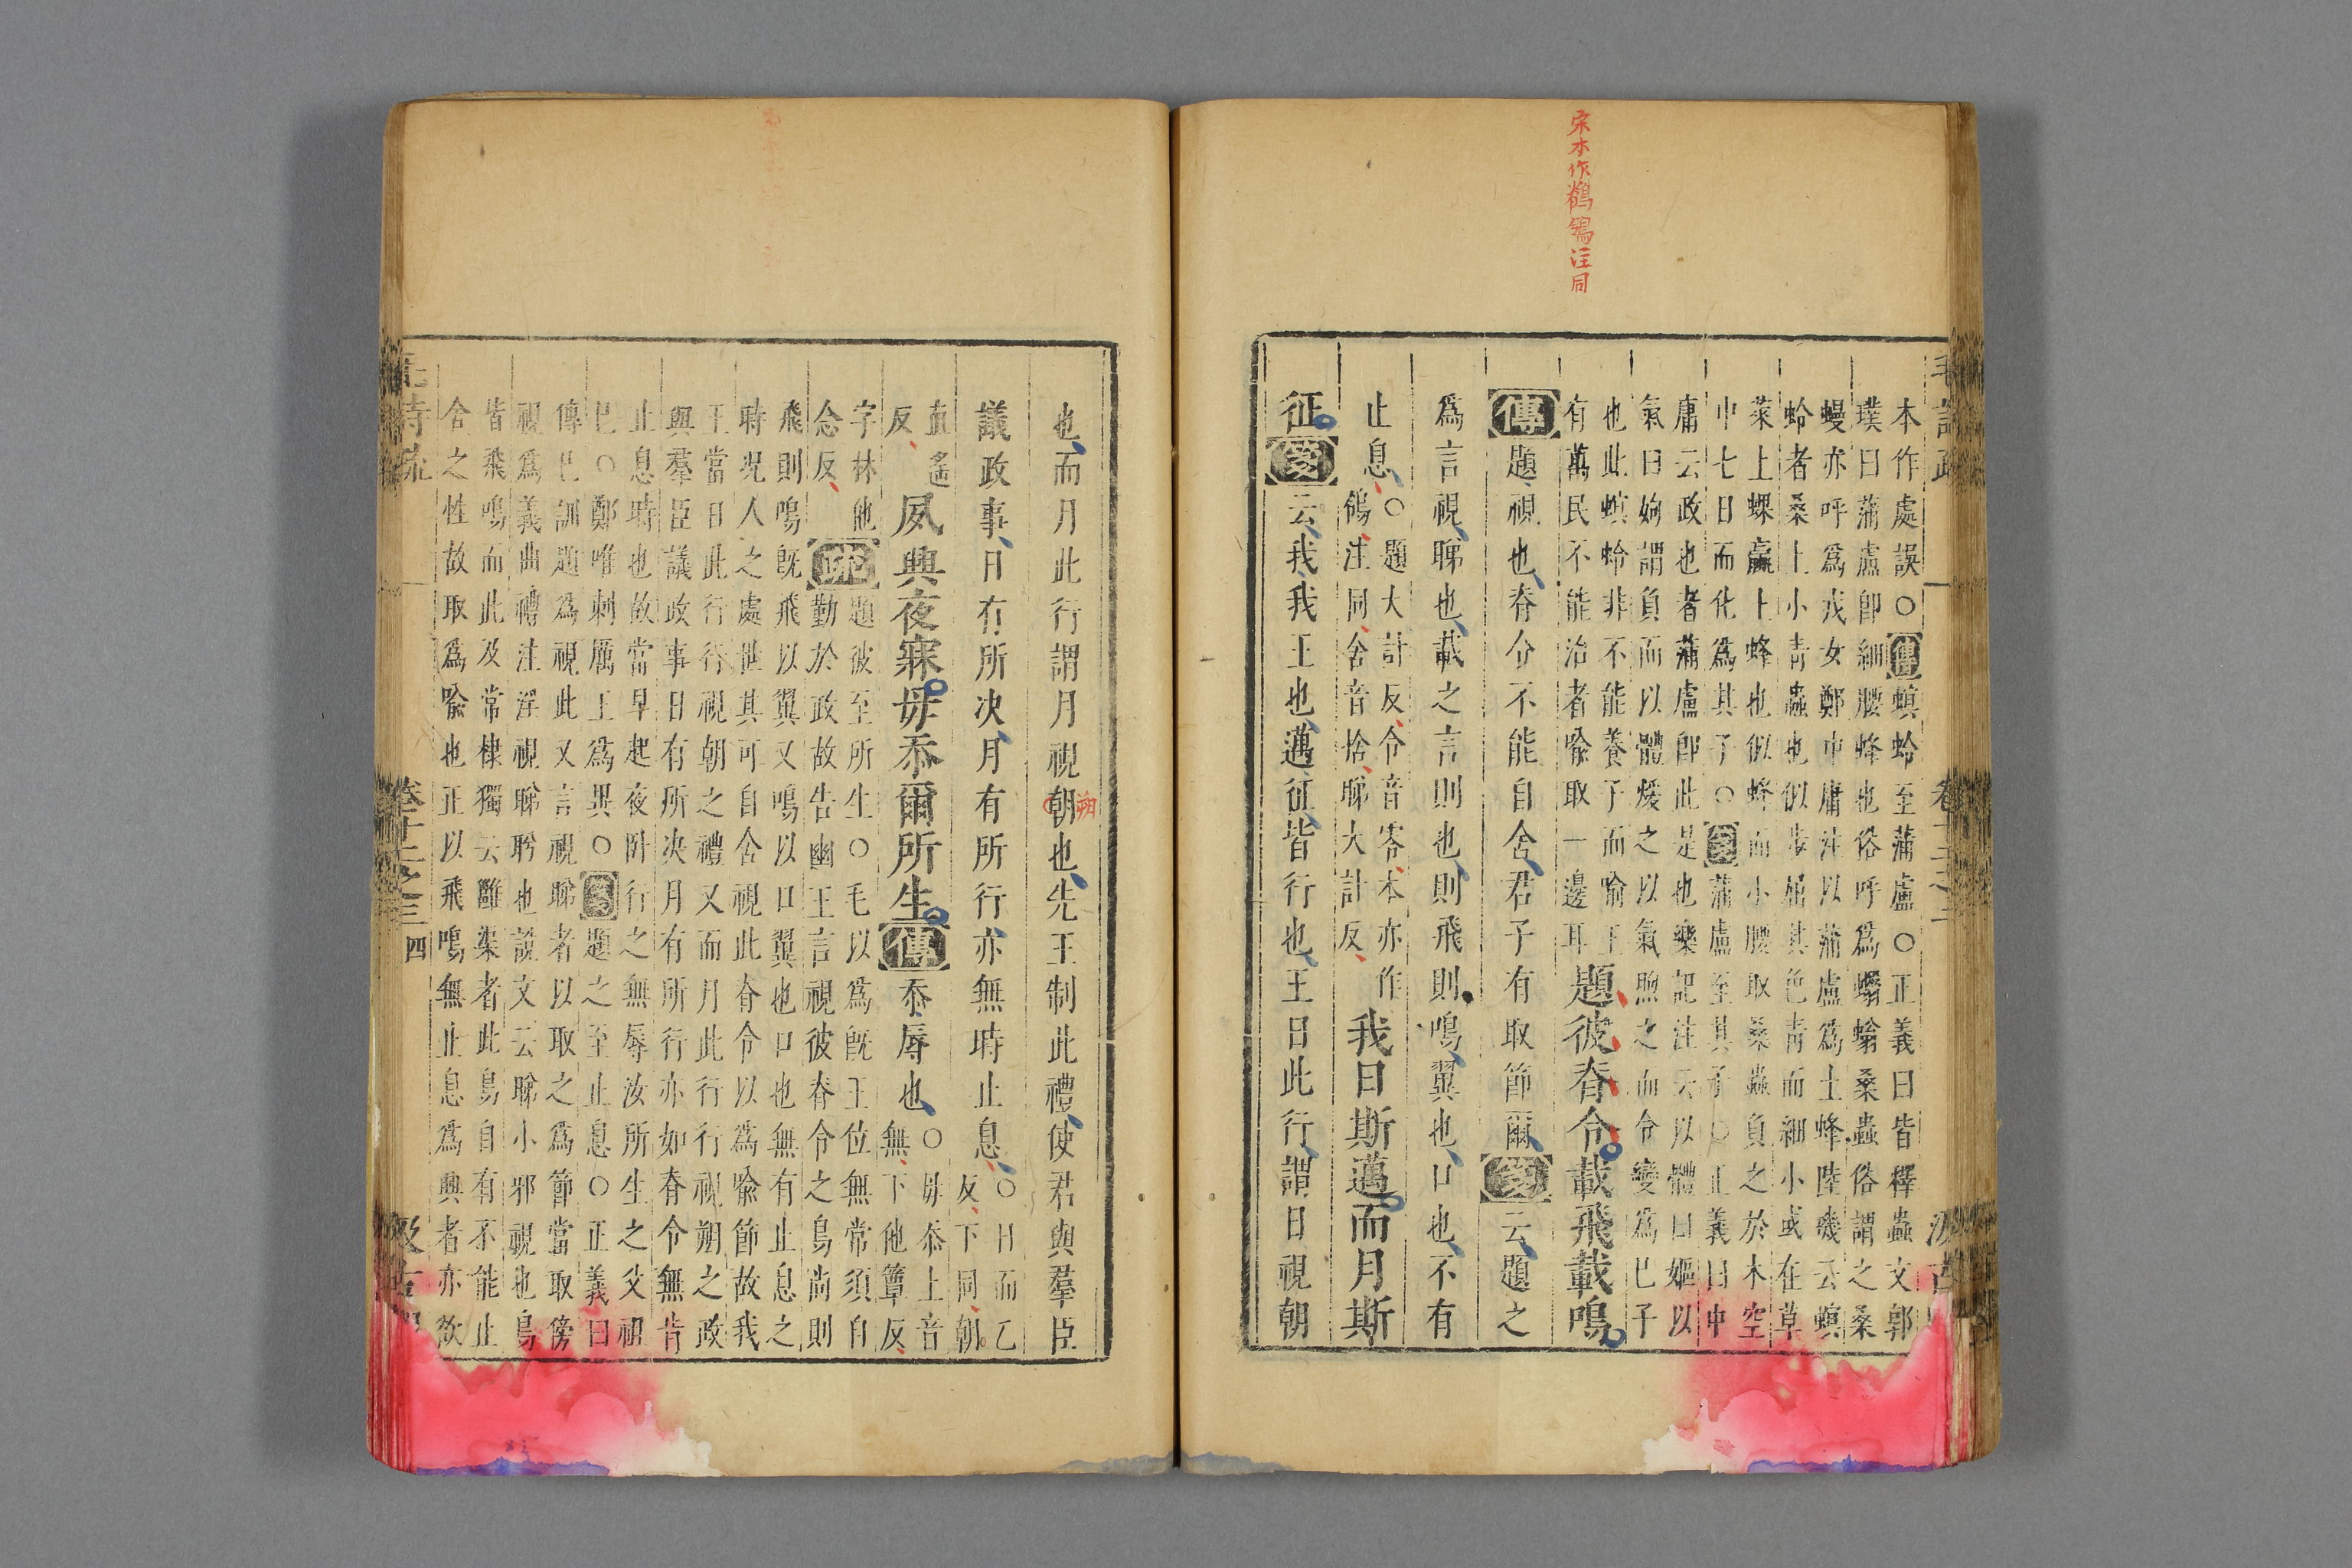 宋本作鶺鴒注同
本作處誤○傳螟蛉至蒲盧○正義曰皆釋蟲文郭
璞曰蒲盧卽細腰蜂也俗呼爲蠮螉桑蟲俗謂之桑
蟃亦呼爲戎女鄭中庸注以蒲盧爲土蜂陸璣云螟
蛉者桑上小青蟲也似步屈其色青而細小或在草
萊上蜾蠃土蜂也似蜂而小腰取桑蟲負之於木空
中七日而化爲其子○箋蒲盧至其子○正義曰中
庸云政也者蒲盧卽此是也樂記注云以體曰嫗以
氣曰姁謂負而以體煖之以氣煦之而令變爲巳子
也此螟蛉非不能養子而喻王
有萬民不能治者喻取一邊耳
題彼脊令載飛載鳴
傳題視也脊令不能自舍君子有取節爾箋云題之
爲言視睇也載之言則也則飛則鳴翼也口也不有
止息
○題大計反令音零本亦作
鴒注同舍音捨睇大計反
我日斯邁而月斯
征箋云我我王也邁征皆行也王日此行謂日視朝
也而月此行謂月視朝也先王制此禮使君與羣臣
朔
議政事日有所决月有所行亦無時止息
○日而乙
反下同朝
直遙
反
夙興夜寐毋忝爾所生傳忝辱也
○毋忝上音
無下他簟反
字林他
念反
疏
題彼至所生○毛以爲旣王位無常須自
勤於政故告幽王言視彼脊令之鳥尚則
飛則鳴旣飛以翼又鳴以口翼也口也無有止息之
時况人之處世其可自舍視此脊令以爲喻節故我
王當日此行行視朝之禮又而月此行行視朔之政
與羣臣議政事日有所决月有所行亦如脊令無肯
止息時也故當早起夜卧行之無辱汝所生之父祖
巳○鄭唯刺厲王爲異○箋題之至止息○正義曰
傳巳訓題爲視此又言視睇者以取之爲節當取傍
視爲義曲禮注淫視睇眄也說文云睇小邪視也鳥
皆飛鳴而此及常棣獨云雝渠者此鳥自有不能止
舍之性故取爲喻也正以飛鳴無止息爲興者亦欲
卷十二之三 四